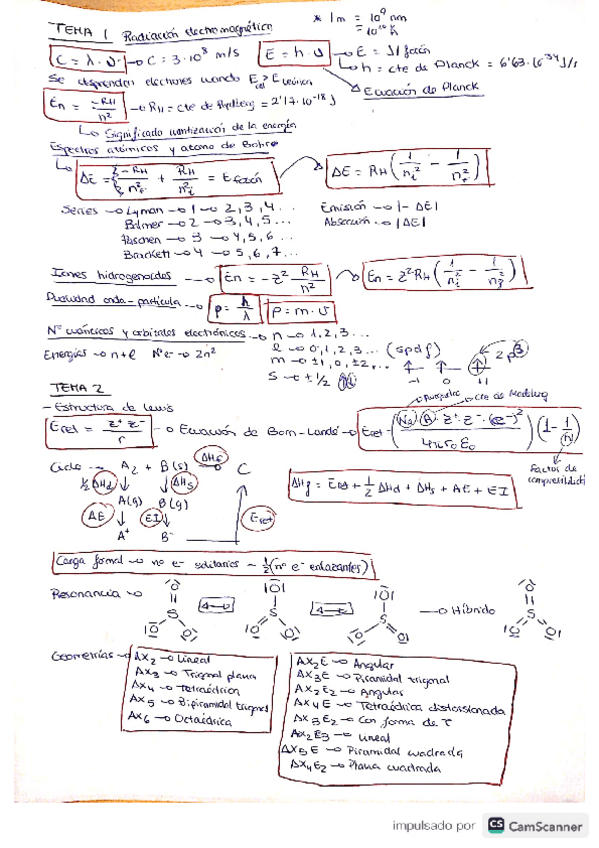 TEMA 1 Radiación electromagnética * 1m = 10⁹ nm
= 10¹⁰ Å
C = λ · υ → C = 3·10⁸ m/s E = h·υ → E = J/fotón
→ h = cte de Planck = 6'63·10⁻³⁴ J/s
Se desprenden electrones cuando E > E
Ecuación de Planck
En = -RH/n² → RH = cte de Rydberg = 2'17·10⁻¹⁸ J
↳ Significado cuantización de la energía
Espectros atómicos y átomo de Bohr
ΔE = -RH/n²f + RH/n²i = E fotón → ΔE = RH (1/n²i - 1/n²f)
Series → Lyman → 1 → 2,3,4... Emisión → |-ΔE|
Balmer → 2 → 3,4,5... Absorción → |ΔE|
Paschen → 3 → 4,5,6...
Brackett → 4 → 5,6,7...
Iones hidrogenoides → En = -Z² RH/n² → En = Z² RH (1/n²i - 1/n²f)
Dualidad onda-partícula → p = h/λ P = m·υ
Nº cuánticos y orbitales electrónicos → n → 1,2,3...
Energías → n+l Nº e⁻ → 2n² l → 0,1,2,3... (spdf)
m → ±1,0,±2,... -1 0 +1 2p³
s → ±1/2
TEMA 2
- Estructura de Lewis
Eret = z⁺ z⁻/r → Ecuación de Born-Landé → Eret = (Na·A·z⁺·z⁻·(e⁻)²/4π r₀ ε₀)(1 - 1/n)
cte de Madelung
Factor de
Ciclo → A₂ + B(s) → ΔHf → C
1/2 ΔHd ΔHs
A(g) B(g)
AE EI Eret
A⁺ B⁻
ΔHf = Eret + 1/2 ΔHd + ΔHs + AE + EI
Carga formal → nº e⁻ solitarios - 1/2 (nº e⁻ enlazantes)
Resonancia → → Híbrido
Geometrías → AX₂ → Lineal
AX₃ → Trigonal plana
AX₄ → Tetraédrica
AX₅ → Bipiramidal trigonal
AX₆ → Octaédrica
AX₂E → Angular
AX₃E → Piramidal trigonal
AX₂E₂ → Angular
AX₄E → Tetraédrica distorsionada
AX₃E₂ → Con forma de T
AX₂E₃ → Lineal
AX₅E → Piramidal cuadrada
AX₄E₂ → Plana cuadrada
impulsado por CS CamScanner